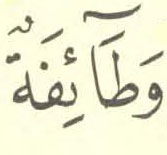 وَطَآئِفَةٌ